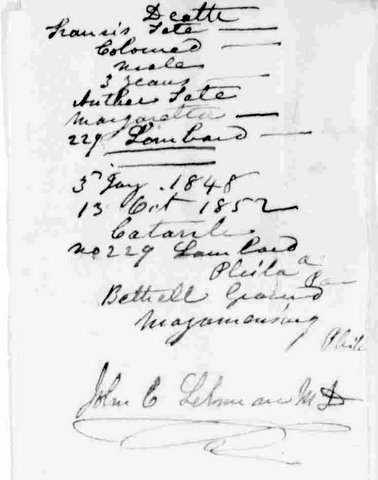 Death
Francis Tate —
Coloured —
male
3 years —
Arther Tate
Margaretta —
229 Lombard —
3 Jay. 1848
13 Oct 1852
Catarh
no 229 Lombard
Phila a
Pa
Bethell Ground
Moyamensing
Phila
John C Lehman MD